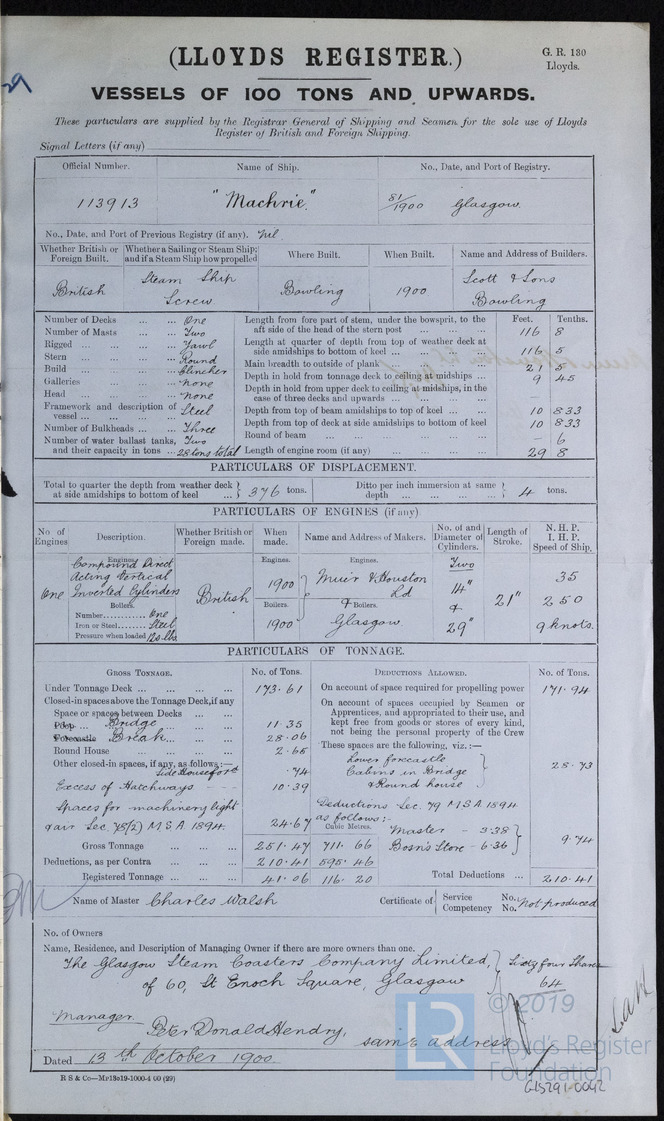 (LLOYDS REGISTER.)
G. R. 130
Lloyds.
VESSELS OF 100 TONS AND UPWARDS.
These particulars are supplied by the Registrar General of Shipping and Seamen for the sole use of Lloyds
Register of British and Foreign Shipping.
Signal Letters (if any)
Official Number. Name of Ship. No., Date, and Port of Registry.
113913 "Machrie." 81/1900 Glasgow.
No., Date, and Port of Previous Registry (if any). Nil
Whether British or Foreign Built. Whether a Sailing or Steam Ship; and if a Steam Ship how propelled Where Built. When Built. Name and Address of Builders.
British Steam Ship Screw Bowling 1900 Scott & Sons Bowling
Number of Decks ... ... One
Number of Masts ... ... Two
Rigged ... ... ... Yawl
Stern ... ... ... Round
Build ... ... ... Clincher
Galleries ... ... none
Head ... ... ... none
Framework and description of vessel ... ... Steel
Number of Bulkheads ... Three
Number of water ballast tanks, and their capacity in tons ... Two 28 tons total
Feet. Tenths.
Length from fore part of stem, under the bowsprit, to the aft side of the head of the stern post ... ... ... 116 8
Length at quarter of depth from top of weather deck at side amidships to bottom of keel ... ... ... 116 5
Main breadth to outside of plank ... ... ... 21 5
Depth in hold from tonnage deck to ceiling at midships ... 9 45
Depth in hold from upper deck to ceiling at midships, in the case of three decks and upwards ... ... ... –
Depth from top of beam amidships to top of keel ... ... 10 833
Depth from top of deck at side amidships to bottom of keel 10 833
Round of beam ... ... ... – 6
Length of engine room (if any) ... ... ... 29 8
PARTICULARS OF DISPLACEMENT.
Total to quarter the depth from weather deck at side amidships to bottom of keel ... } 376 tons. Ditto per inch immersion at same depth ... ... ... } 4 tons.
PARTICULARS OF ENGINES (if any).
No of Engines Description. Whether British or Foreign made. When made. Name and Address of Makers. No. of and Diameter of Cylinders. Length of Stroke. N. H. P. I. H. P. Speed of Ship.
Engines. Engines. Engines.
One Compound Direct Acting Vertical Inverted Cylinders British 1900 Muir & Houston Ld Two 14" & 29" 21" 35 250 9 knots.
Boilers. Boilers. & Boilers.
Number ... One 1900 Glasgow
Iron or Steel ... Steel
Pressure when loaded 120 lbs.
PARTICULARS OF TONNAGE.
GROSS TONNAGE. No. of Tons. DEDUCTIONS ALLOWED. No. of Tons.
Under Tonnage Deck ... ... ... 173.61
Closed-in spaces above the Tonnage Deck, if any
Space or spaces between Decks ... ...
Poop ... Bridge ... 11.35
Forecastle Break ... 28.06
Round House ... ... ... 2.65
Other closed-in spaces, if any, as follows:—
Side House ford .74
Excess of Hatchways 10.39
Spaces for machinery light
& air Sec. 78(2) M S A 1894. 24.67
Gross Tonnage ... ... ... 251.47 711.66
Deductions, as per Contra ... ... ... 210.41 595.46
Registered Tonnage ... ... ... 41.06 116.20
On account of space required for propelling power 171.94
On account of spaces occupied by Seamen or Apprentices, and appropriated to their use, and kept free from goods or stores of every kind, not being the personal property of the Crew
These spaces are the following, viz.:—
Lower forecastle
Cabins in Bridge
& Round house } 28.73
Deductions Sec. 79 M S A 1894
as follows:-
Cubic Metres.
Master - 3.38
Bosn's Store - 6.36 } 9.74
Total Deductions ... 210.41
Name of Master Charles Walsh Certificate of { Service No. Competency No. not produced
No. of Owners
Name, Residence, and Description of Managing Owner if there are more owners than one.
The Glasgow Steam Coasters Company Limited, } Sixty four Shares
of 60, St Enoch Square, Glasgow 64
Manager
Peter Donald Hendry, same address
Dated 13th October 1900
R S & Co—Mp13o19-1000-4 00 (29)
LR
© 2019
Lloyd's Register
Foundation
GIS291-0042